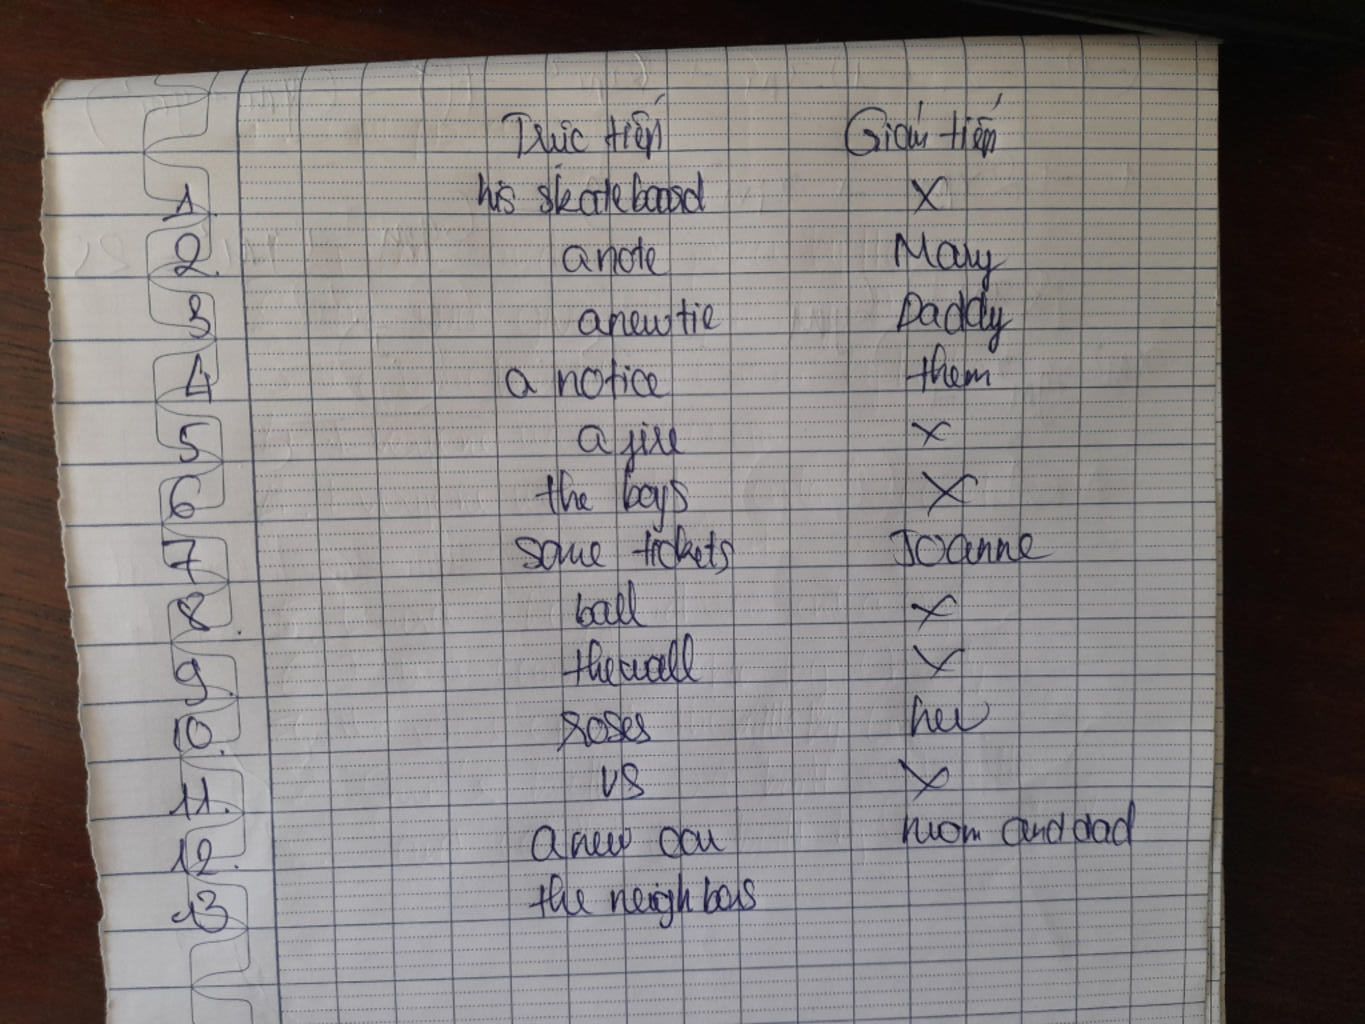 Trực tiếp Gián tiếp
1. his skateboard X
2. a note Mary
3 a new tie Daddy
4 a notice them
5 a fire X
6 the boys X
7 some tickets Joanne
8. ball X
9. the wall X
10. roses her
11. us X
12. a new car mom and dad
13 the neighbors